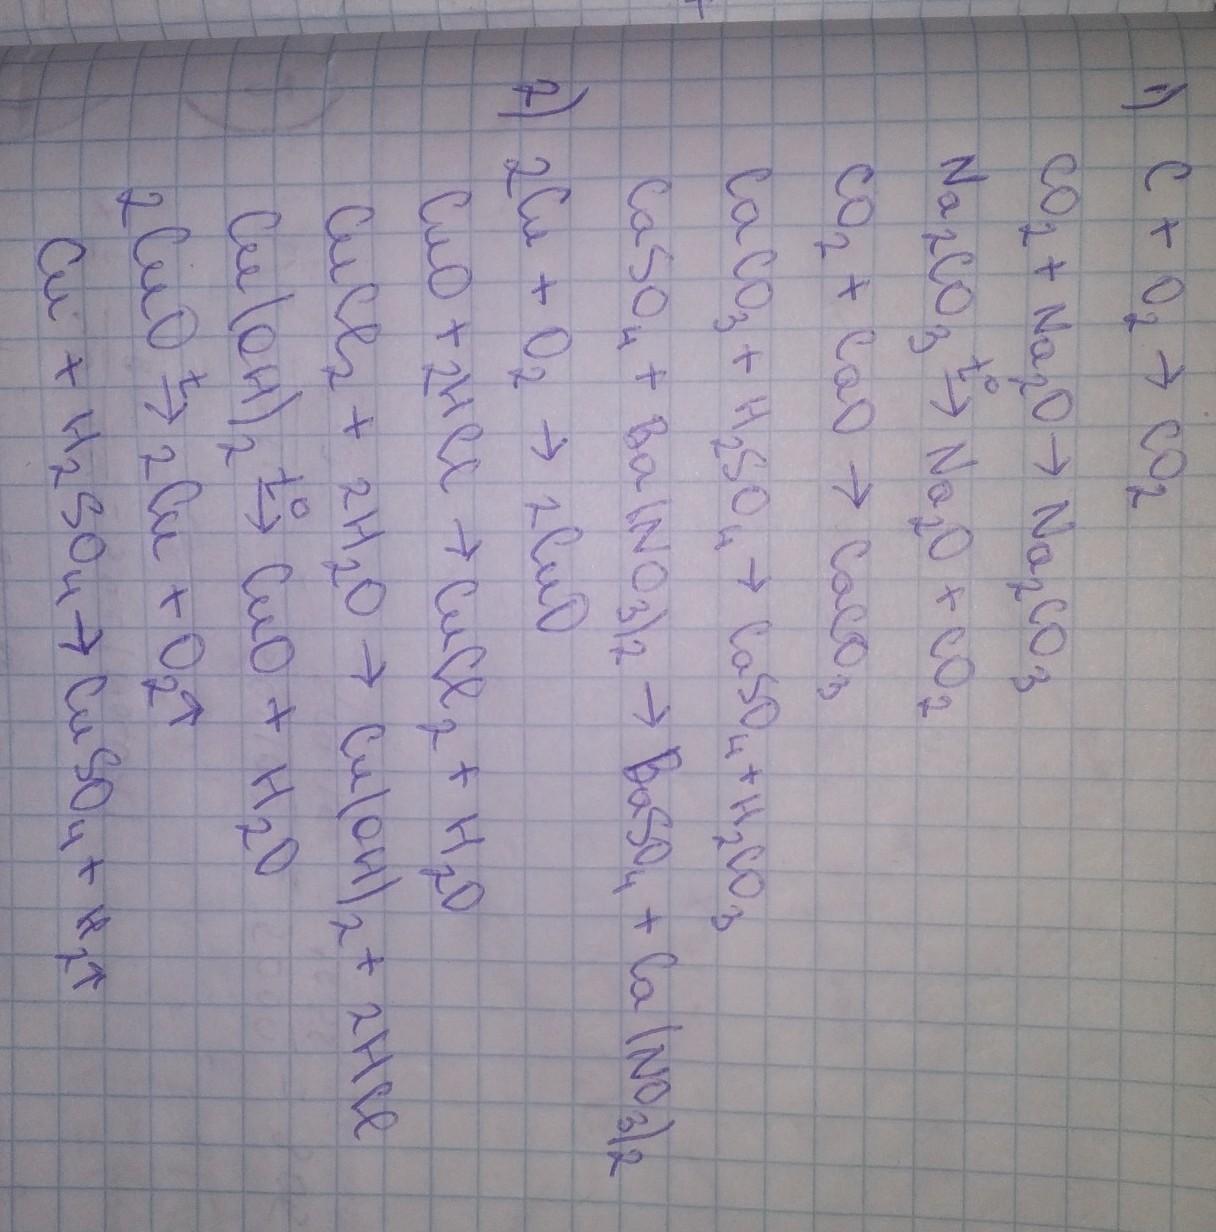 1) C + O₂ → CO₂
CO₂ + Na₂O → Na₂CO₃
Na₂CO₃ t°→ Na₂O + CO₂
CO₂ + CaO → CaCO₃
CaCO₃ + H₂SO₄ → CaSO₄ + H₂CO₃
CaSO₄ + Ba(NO₃)₂ → BaSO₄ + Ca(NO₃)₂
2) 2Cu + O₂ → 2CuO
CuO + 2HCl → CuCl₂ + H₂O
CuCl₂ + 2H₂O → Cu(OH)₂ + 2HCl
Cu(OH)₂ t°→ CuO + H₂O
2CuO t→ 2Cu + O₂↑
Cu + H₂SO₄ → CuSO₄ + H₂↑